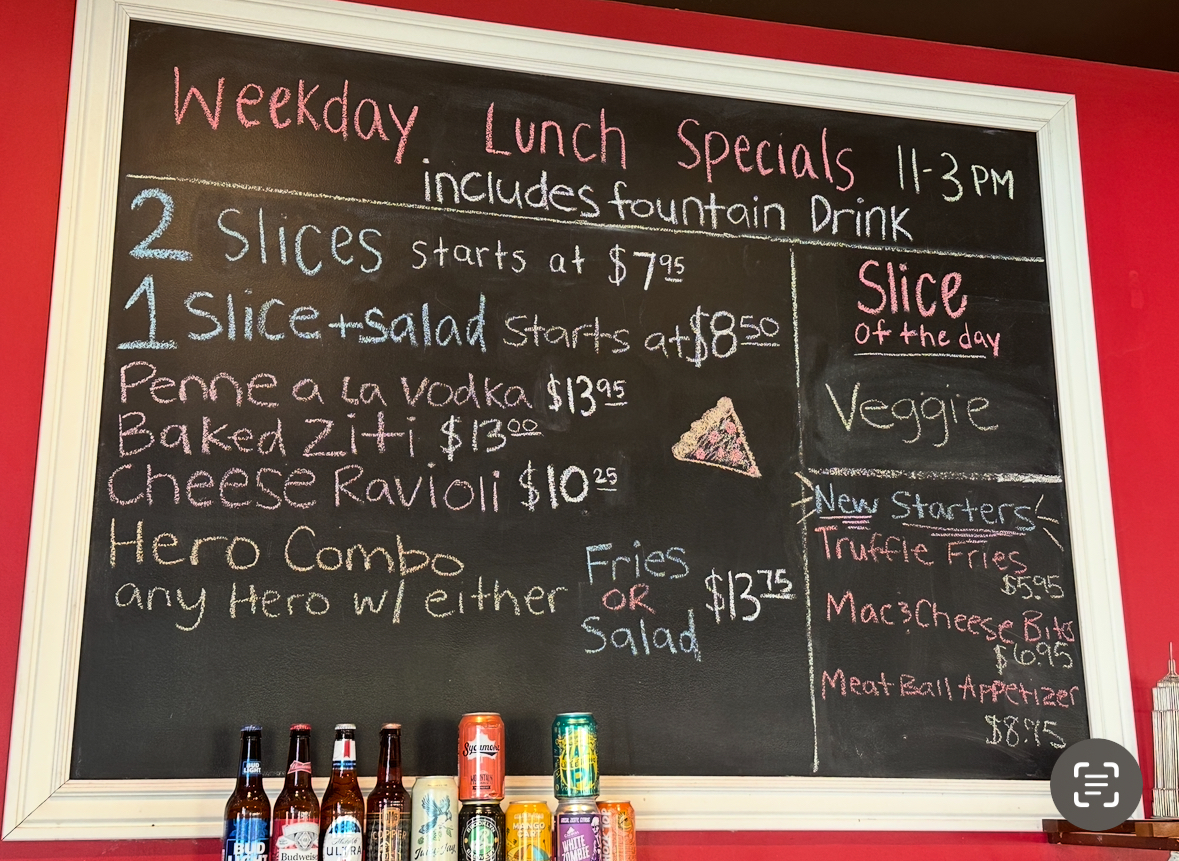 Weekday Lunch Specials 11-3 PM
includes fountain Drink
2 Slices starts at $7.95
1 Slice + salad starts at $8.50
Penne a La Vodka $13.95
Baked Ziti $13.00
Cheese Ravioli $10.25
Hero Combo
any Hero w/ either Fries OR Salad $13.75
Slice
of the day
Veggie
New Starters
Truffle Fries
$5.95
Mac & Cheese Bits
$6.95
Meat Ball Appetizer
$8.75
BUD LIGHT
BUD LIGHT
Budweiser
ULTRA
COPPER
Juicy
Sycamore
MOUNTAIN
MANGO CART
WHITE ZOMBIE